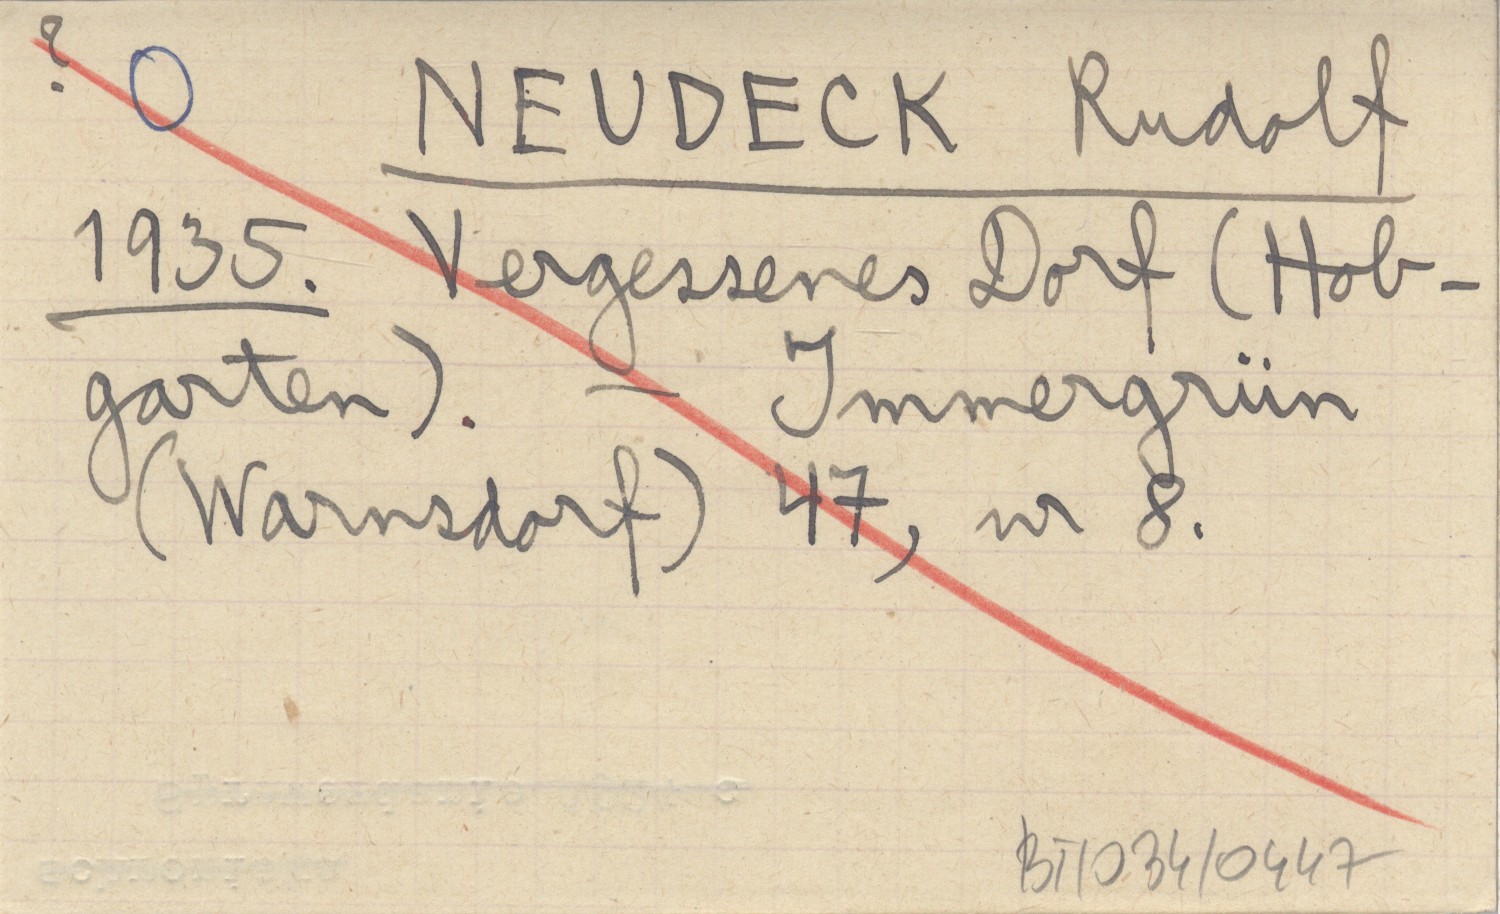 ?
NEUDECK Rudolf
1935. Vergessenes Dorf (Hob-
garten). — Immergrün
(Warnsdorf) 47, nr 8.
BT/034/0447